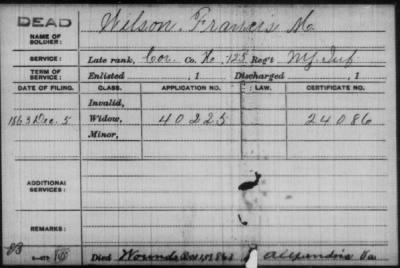 DEAD
Wilson, Francis M.
NAME OF SOLDIER:
SERVICE: Late rank, Cor. Co. K, 125 Regt N.Y. Inf
TERM OF SERVICE: Enlisted , 1 Discharged , 1
DATE OF FILING. CLASS. APPLICATION NO. LAW. CERTIFICATE NO.
Invalid,
1863 Dec. 5 Widow, 40225 24086
Minor,
ADDITIONAL SERVICES:
REMARKS:
Died Wounds 1863 Alexandria Va